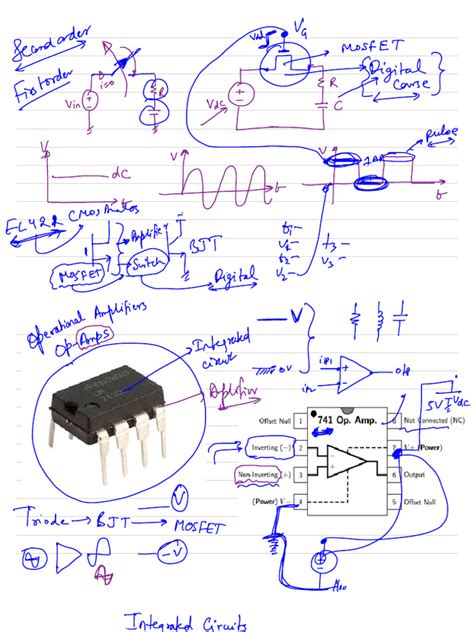 Second order
First order
i=0
Vin
R
VG
MOSFET
Digital
Course
Vdc
R
C
pulse
V
dc
t
V
t
V
t
EL422
CMOS
MOSFET
Amplific
Switch
BJT
Digital
t1 –
V1 –
t2 –
V2 –
t3 –
V3 –
Operational Amplifiers
Op-Amps
Integrated
circuit
Amplifier
V
0V
ip1
in2
o/p
5V
Vdc
741 Op. Amp.
Offset Null 1
8 Not Connected (NC)
Inverting (−) 2
7 V+ (Power)
Non-Inverting (+) 3
6 Output
(Power) V− 4
5 Offset Null
V
Triode → BJT → MOSFET
−V
Integrated Circuits